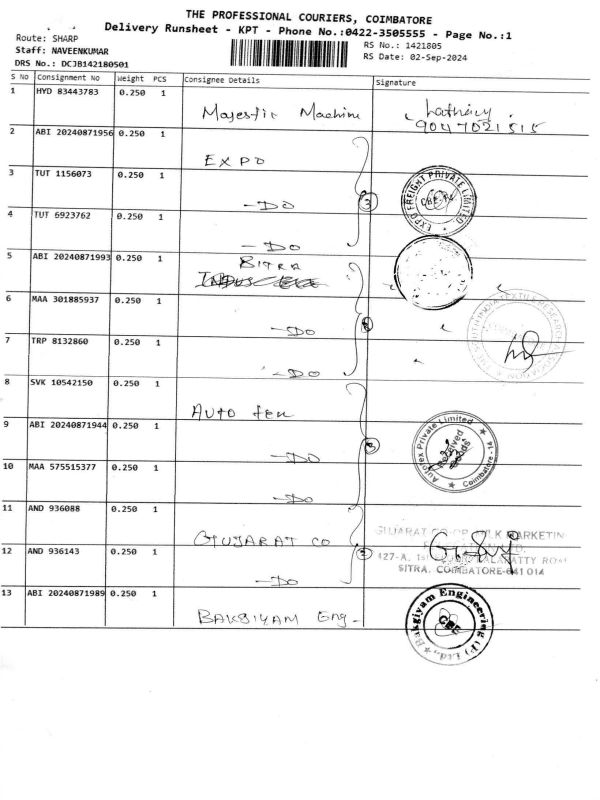 THE PROFESSIONAL COURIERS, COIMBATORE
Delivery Runsheet - KPT - Phone No.:0422-3505555 - Page No.:1
Route: SHARP
Staff: NAVEENKUMAR
DRS No.: DCJB142180501
RS No.: 1421805
RS Date: 02-Sep-2024
S No Consignment No Weight PCS Consignee Details Signature
1 HYD 83443783 0.250 1 Majestic Machine 9047021515
2 ABI 20240871956 0.250 1 EXPO
3 TUT 1156073 0.250 1 -DO 3
EXPO FREIGHT PRIVATE LIMITED CBE-14
4 TUT 6923762 0.250 1 -DO
5 ABI 20240871993 0.250 1 BITRA
6 MAA 301885937 0.250 1 -DO
THE SOUTH INDIA TEXTILE RESEARCH ASSOCIATION
7 TRP 8132860 0.250 1 -DO
8 SVK 10542150 0.250 1 Auto tex
9 ABI 20240871944 0.250 1 -DO
Autotex Private Limited Coimbatore - 14 Received
10 MAA 575515377 0.250 1 -DO
11 AND 936088 0.250 1 GUJARAT CO
GUJARAT CO-OP MILK MARKETIN
12 AND 936143 0.250 1 -DO
SITRA, COIMBATORE-641 014
13 ABI 20240871989 0.250 1 BAKGIYAM Eng-
Bakgiyam Engineering (P) Ltd., CBE